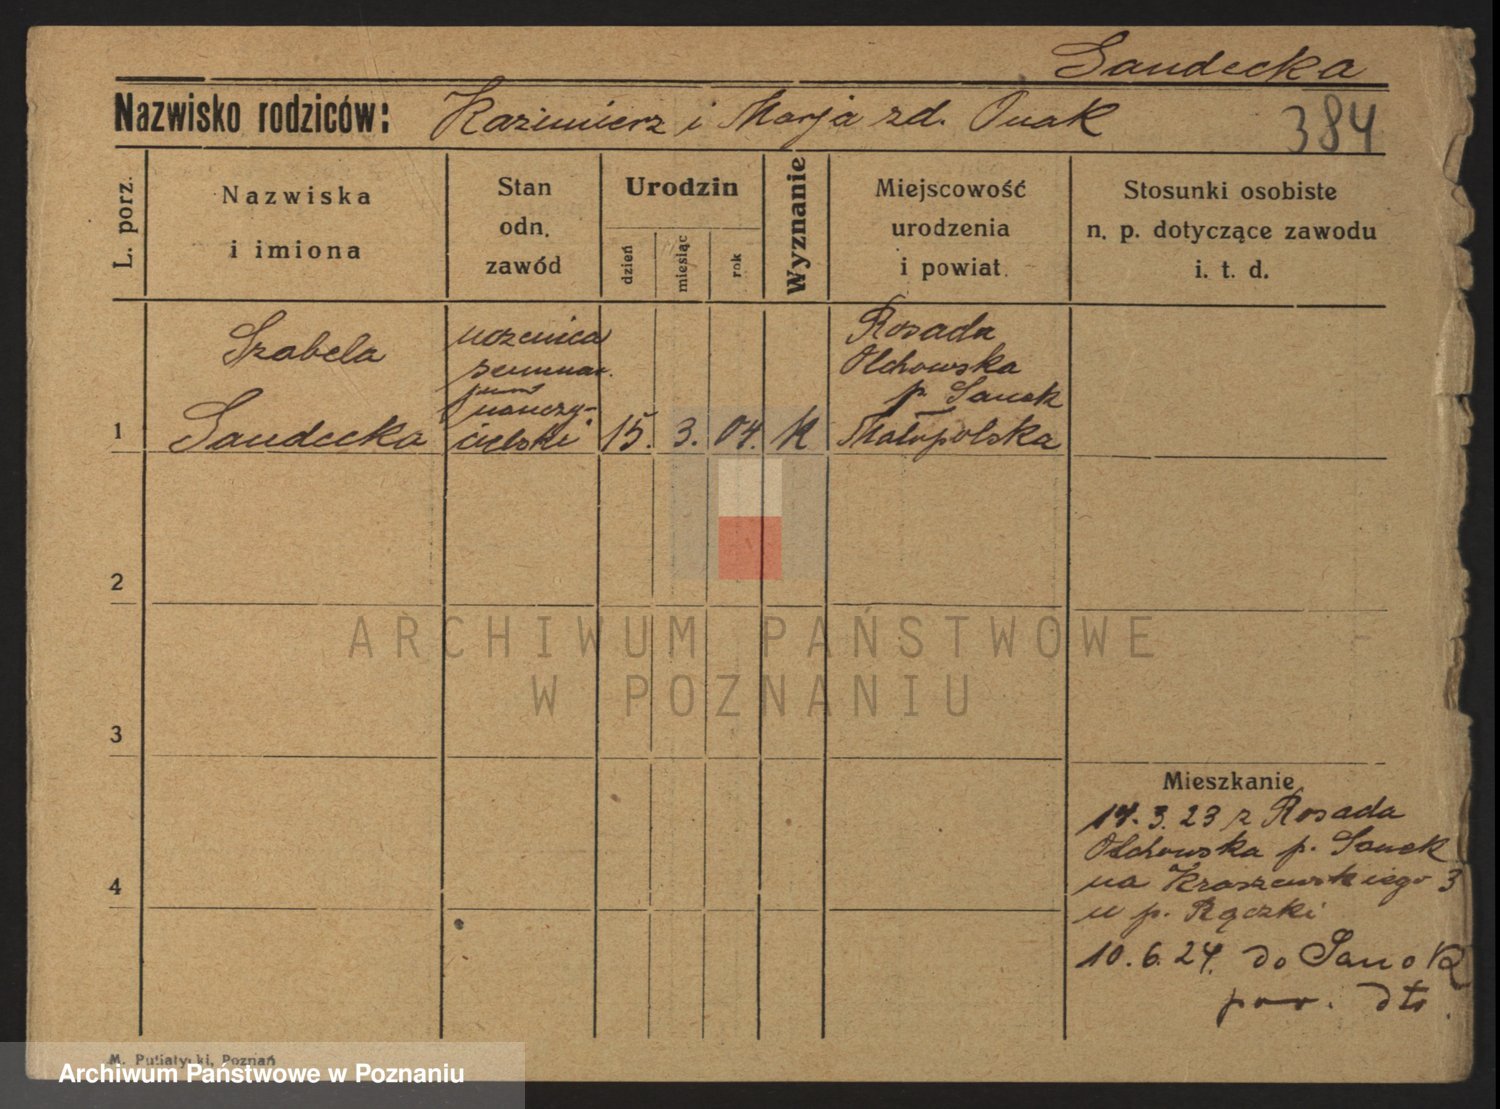 Sandecka
Nazwisko rodziców: Kazimierz i Marja zd. Onak
384
L. porz.
Nazwiska
i imiona
Stan
odn.
zawód
Urodzin
dzień
miesiąc
rok
Wyznanie
Miejscowość
urodzenia
i powiat
Stosunki osobiste
n. p. dotyczące zawodu
i. t. d.
1
Izabela
Sandecka
uczenica
seminar.
nauczy-
cielski
15.
3.
04.
K
Posada
Olchowska
p. Sanok
Małopolska
2
3
4
Mieszkanie
14.3.23 z Posada
Olchowska p. Sanok
na Kraszewskiego 3
u p. Rączki
10.6.24. do Sanok
pow. dto.
M. Putiatycki, Poznań
ARCHIWUM PAŃSTWOWE
W POZNANIU
Archiwum Państwowe w Poznaniu